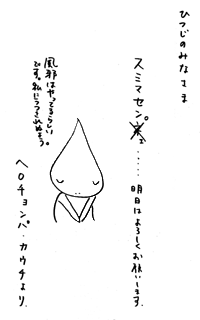 ひつじのみなさま
スミマセン。……明日はよろしくお休いします。
風邪はやってるらしい
です。私にうつされぬよう。
ペロチョンパ・カウチより